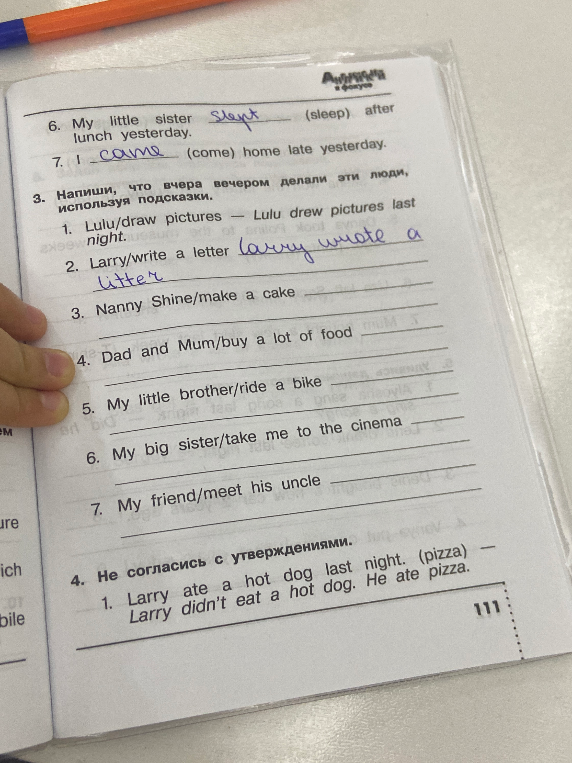 Английский
в фокусе
6. My little sister slept (sleep) after
lunch yesterday.
7. I came (come) home late yesterday.
3. Напиши, что вчера вечером делали эти люди,
используя подсказки.
1. Lulu/draw pictures — Lulu drew pictures last
night.
2. Larry/write a letter Larry wrote a
litter
3. Nanny Shine/make a cake
4. Dad and Mum/buy a lot of food
5. My little brother/ride a bike
6. My big sister/take me to the cinema
7. My friend/meet his uncle
4. Не согласись с утверждениями.
1. Larry ate a hot dog last night. (pizza) —
Larry didn't eat a hot dog. He ate pizza.
111
ем
ure
ich
bile